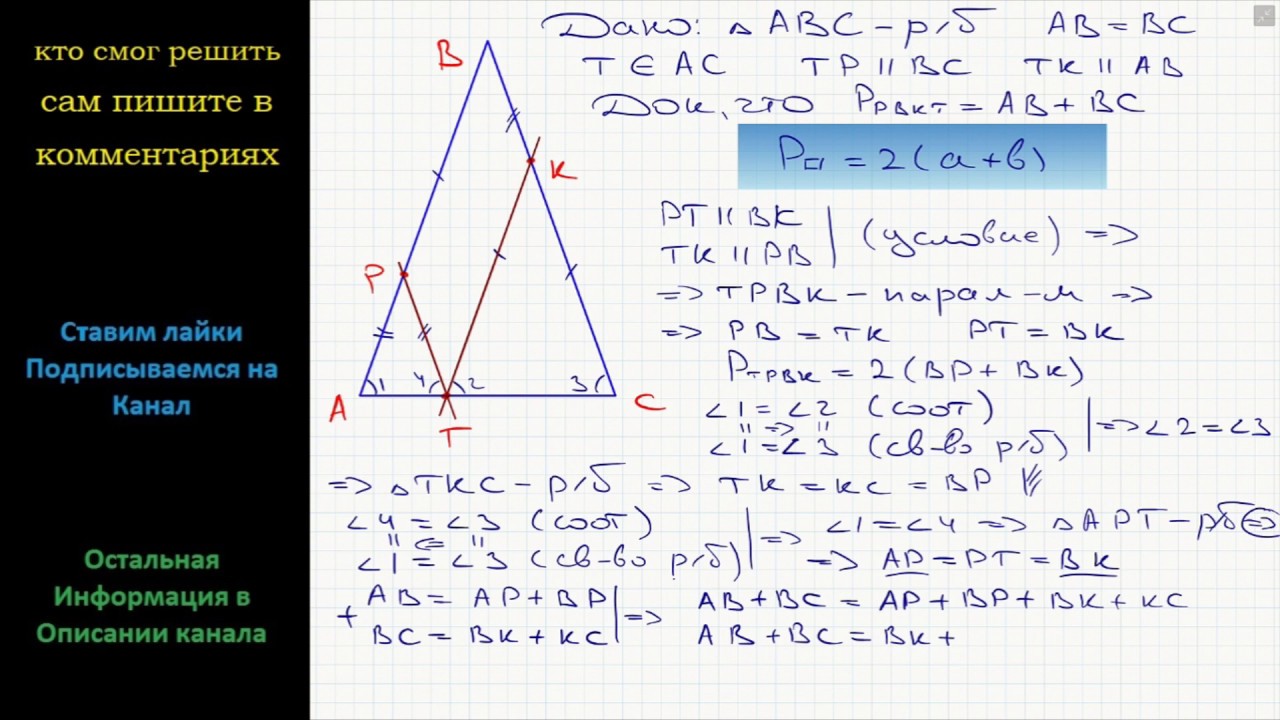 кто смог решить
сам пишите в
комментариях
Ставим лайки
Подписываемся на
Канал
Остальная
Информация в
Описании канала
Дано: △ ABC - р/б AB = BC
T ∈ AC TP || BC TK || AB
Док, что P PBKT = AB + BC
P▱ = 2(a+b)
B
K
P
A
1
4
2
3
C
T
PT || BK
TK || PB
(условие) =>
=> TPBK - парал-м =>
=> PB = TK PT = BK
P TPBK = 2(BP + BK)
∠1 = ∠2 (соот)
|| => ||
∠1 = ∠3 (св-во р/б)
=> ∠2 = ∠3
=> △TKC - р/б => TK = KC = BP
∠4 = ∠3 (соот)
|| <= ||
∠1 = ∠3 (св-во р/б)
=> ∠1 = ∠4 => △APT - рб =>
=> AP = PT = BK
+ AB = AP + BP
BC = BK + KC
=> AB + BC = AP + BP + BK + KC
AB + BC = BK +